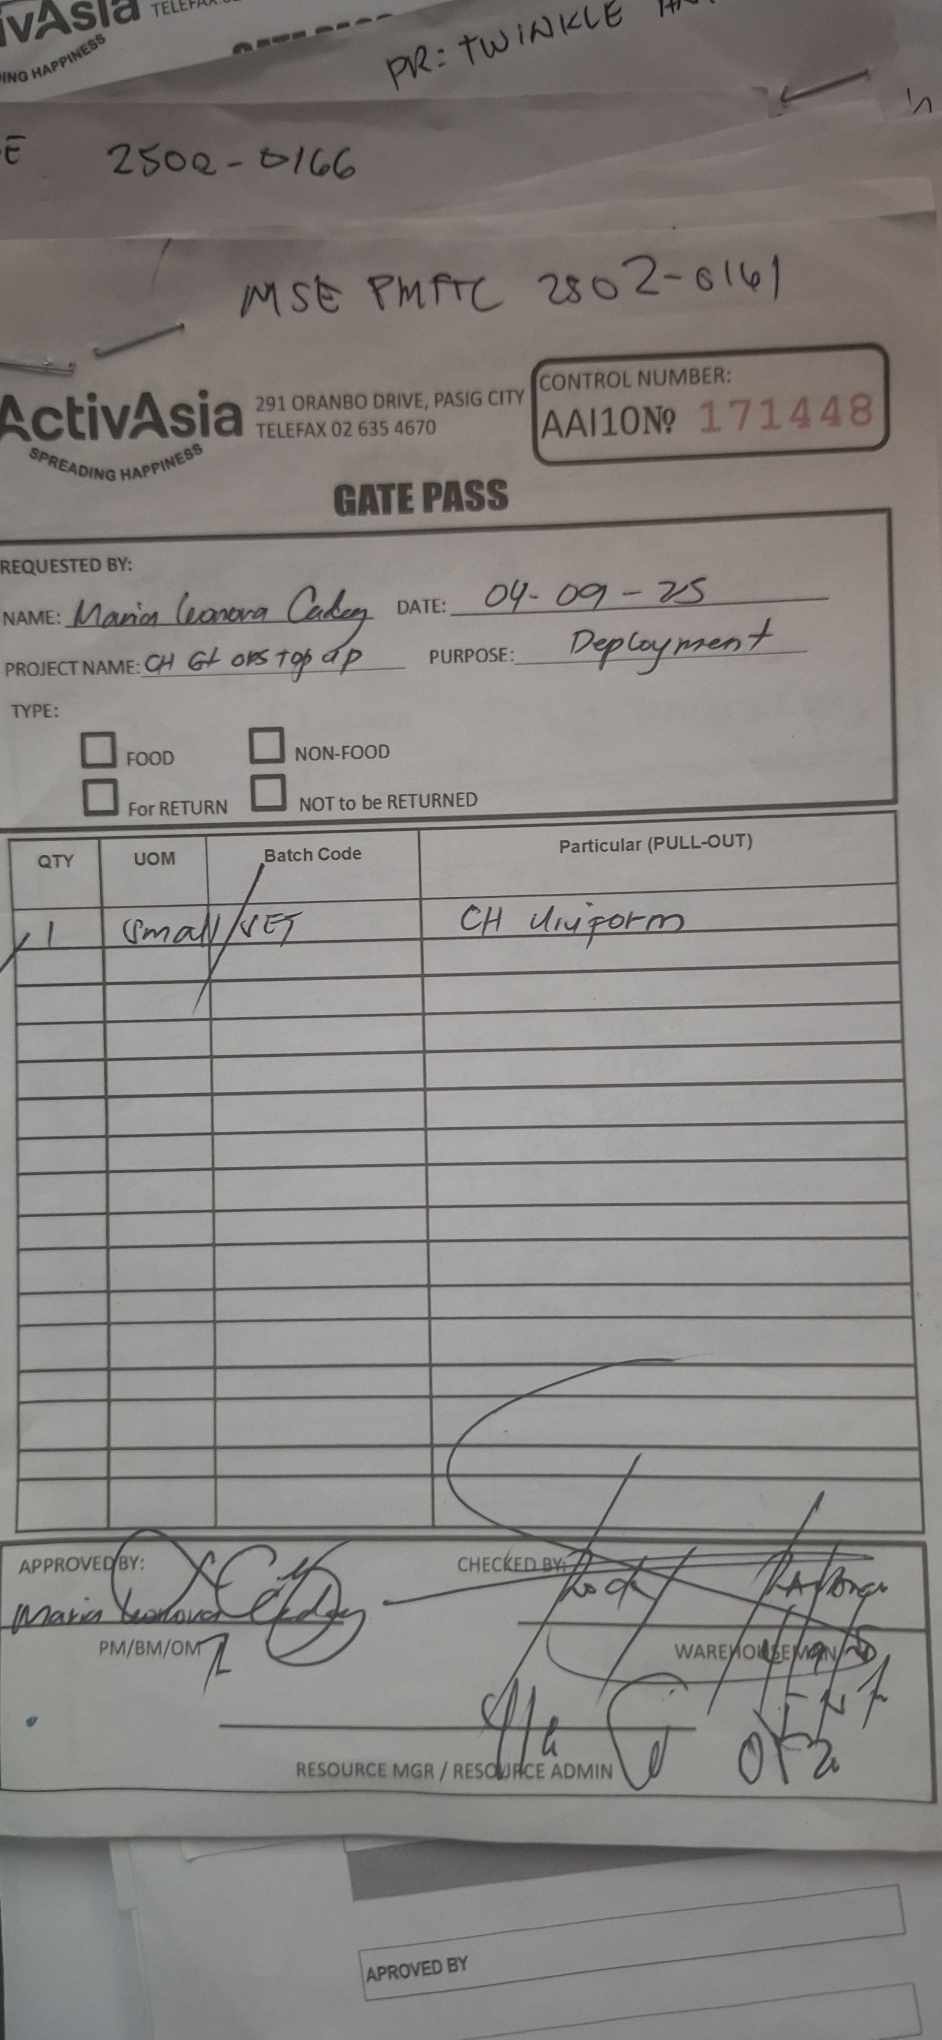 ivAsia TELEFAX
ING HAPPINESS
PR: TWINKLE
E 2502-0166
MSE PMFTC 2502-0161
ActivAsia
SPREADING HAPPINESS
291 ORANBO DRIVE, PASIG CITY
TELEFAX 02 635 4670
CONTROL NUMBER:
AAI10No 171448
GATE PASS
REQUESTED BY:
NAME: Maria Leonora DATE: 04-09-25
PROJECT NAME: CH GT ops top up PURPOSE: Deployment
TYPE:
FOOD NON-FOOD
For RETURN NOT to be RETURNED
QTY UOM Batch Code Particular (PULL-OUT)
1 Small/SET CH Uniform
APPROVED BY: CHECKED BY:
Maria Leonora
PM/BM/OM WAREHOUSEMAN
RESOURCE MGR / RESOURCE ADMIN
APROVED BY